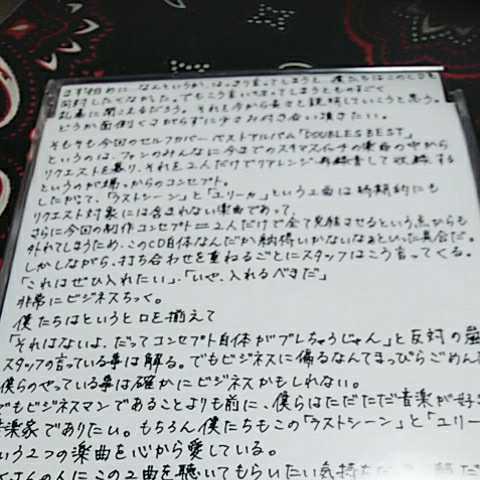 まず始めに なんというか、はっきり言ってしまうと 僕たちはこのCDを
同封したくなかった。でもこう言い切ってしまうとものすごく
乱暴に聞こえるだろう。それを今から長々と説明していこうと思う。
どうか面倒くさがらずに少々お付き合い頂きたい。
そもそも今回のセルフカバーベストアルバム「DOUBLES BEST」
というのは、ファンのみんなに今までのスキマスイッチの楽曲の中から
リクエストを募り、それを2人だけでリアレンジ・再録音して収録する
というのが端っからのコンセプト。
したがって、「ラストシーン」と「ユリーカ」という2曲は時期的にも
リクエスト対象には含まれない楽曲であって、
さらに今回の制作コンセプト=2人だけで全て完結させるという点からも
外れてしまうため、このCD自体なんだか納得いかないなぁといった具合だ。
しかしながら、打ち合わせを重ねるごとにスタッフはこう言ってくる。
「これはぜひ入れたい」、「いや、入れるべきだ」
非常にビジネスちっく。
僕たちはというと口を揃えて
「それはないよ、だってコンセプト自体がブレちゃうじゃん」と反対の嵐
スタッフの言っている事は解る。でもビジネスに偏るなんてまっぴらごめん
僕らのやっている事は確かにビジネスかもしれない。
でもビジネスマンであることよりも前に、僕らはただただ音楽が好き
音楽家でありたい。もちろん僕たちもこの「ラストシーン」と「ユリー
いう2つの楽曲を心から愛している。
くさんの人にこの2曲を聴いてもらいたい気持ち